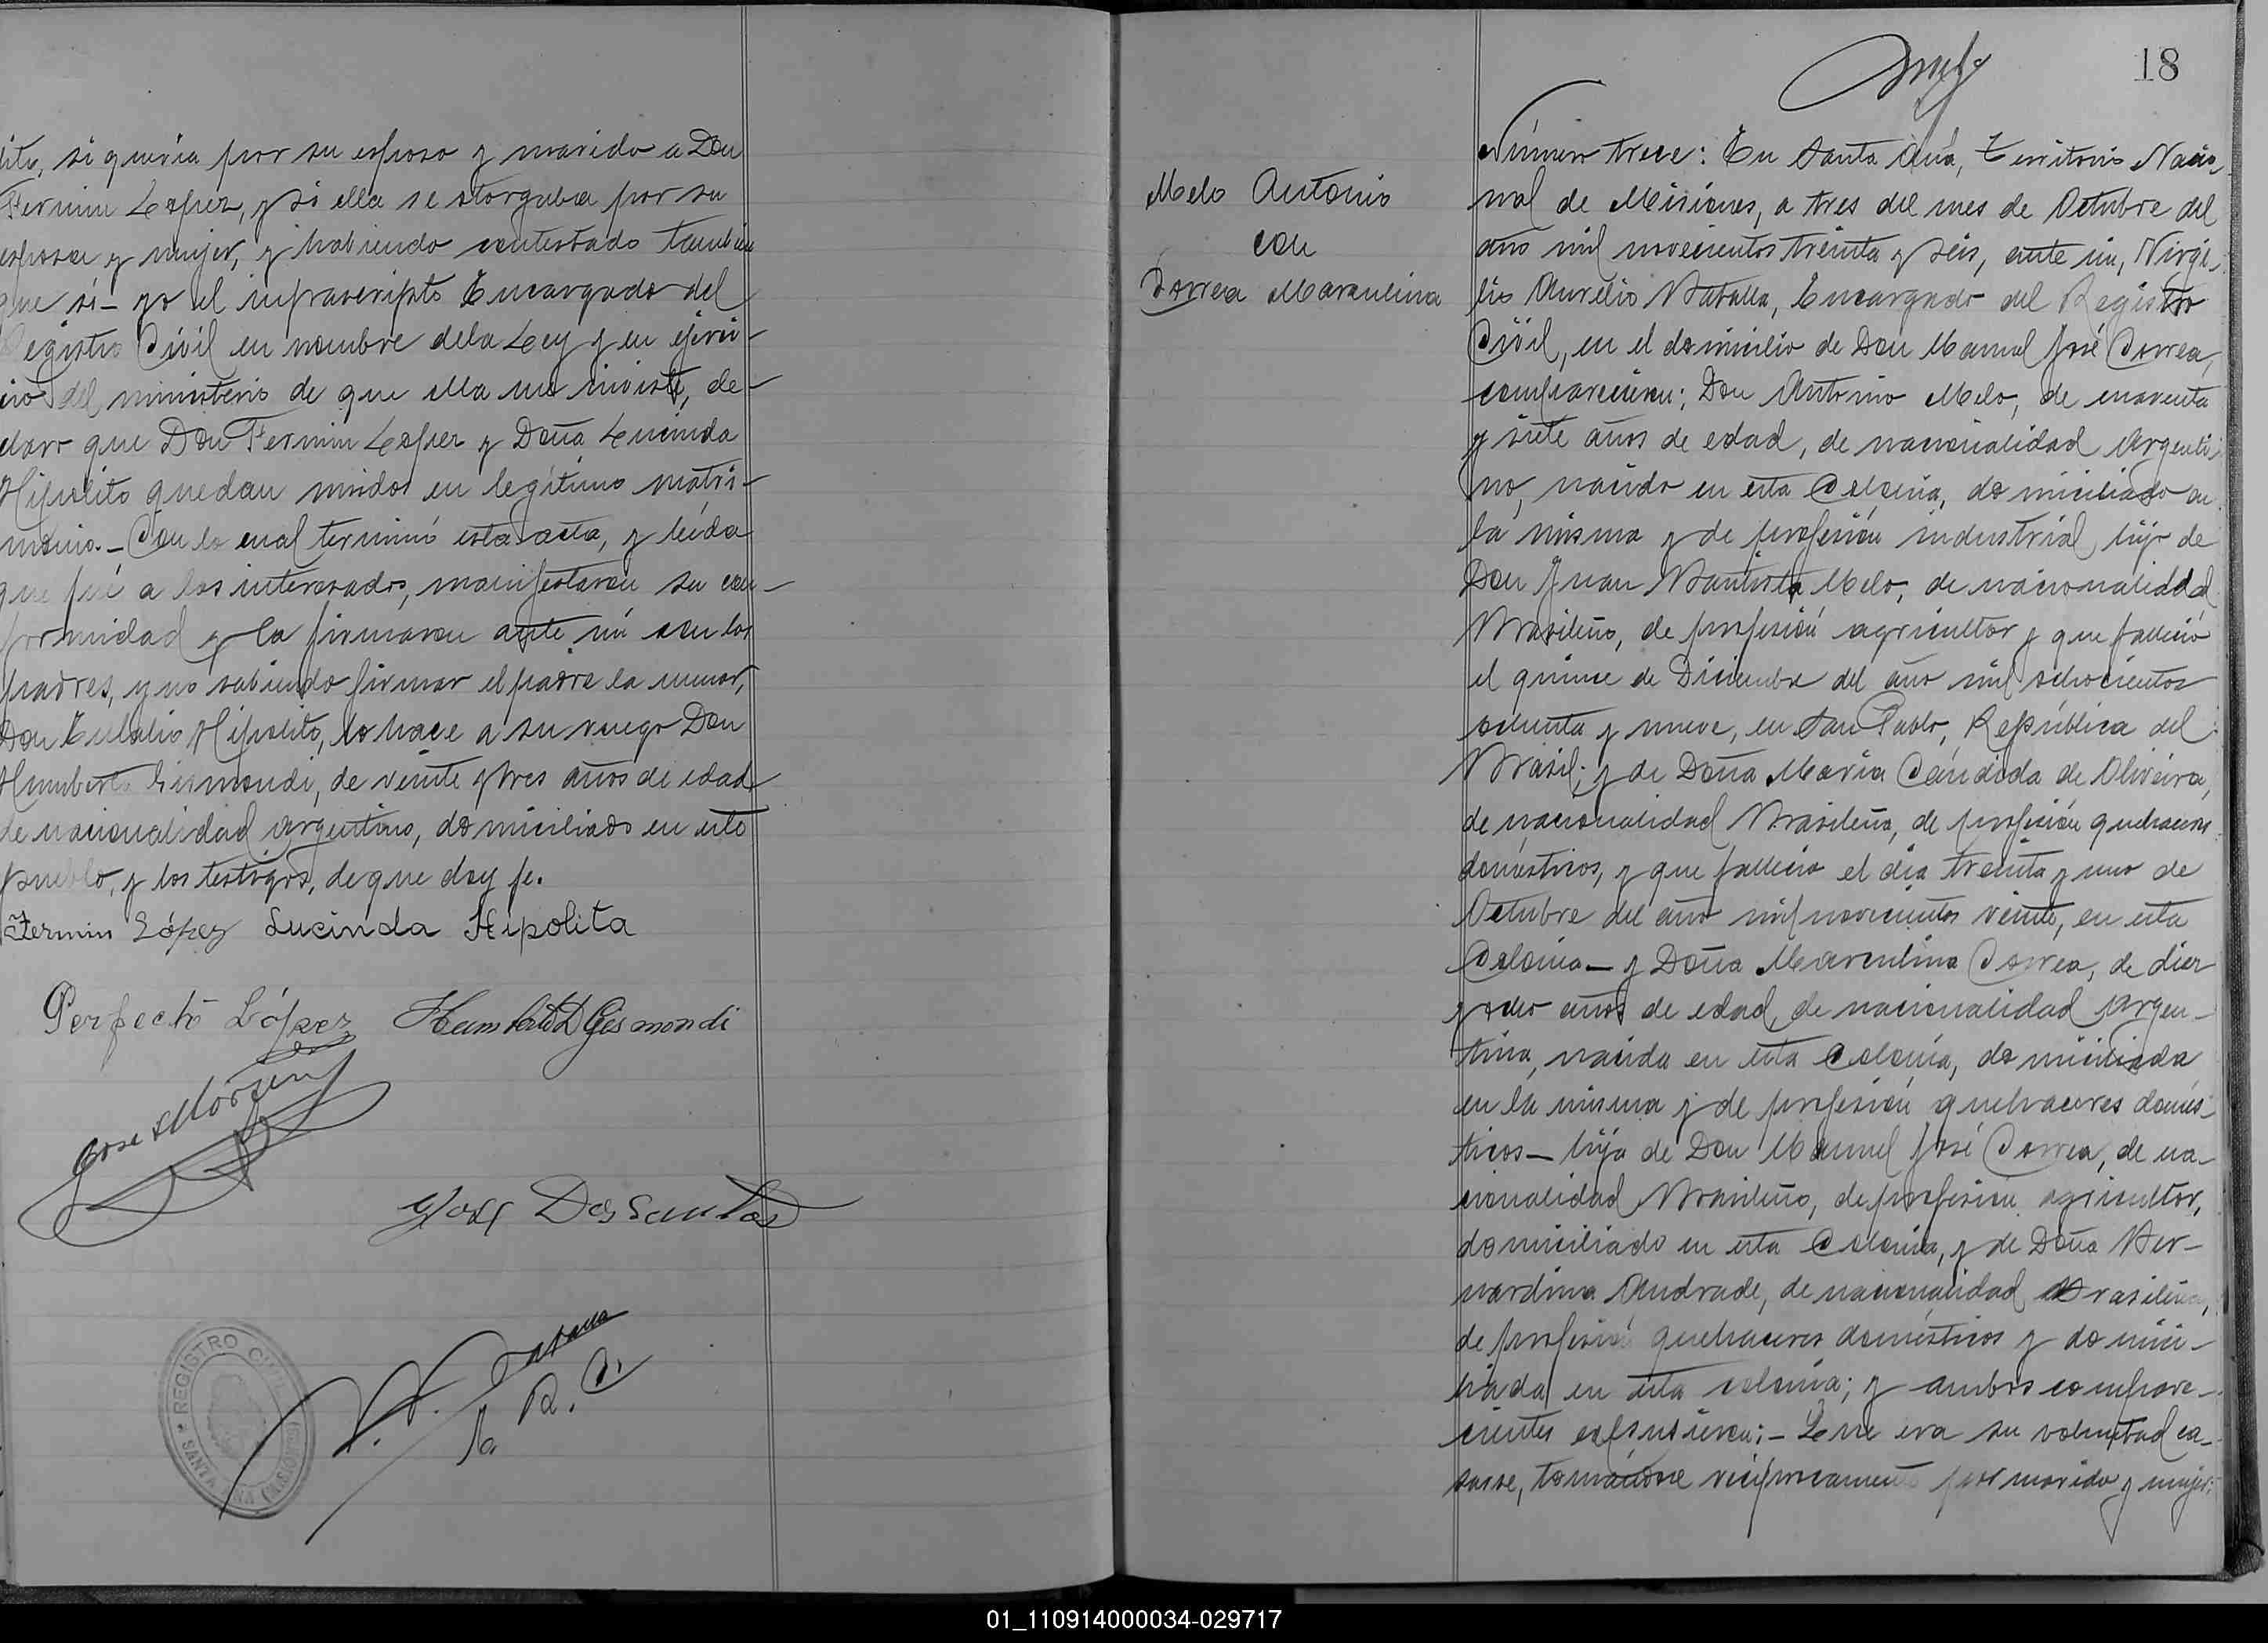 lito, si queria por su esposo y marido a Don
Fermin Lopez, y si ella se otorgaba por su
esposa y mujer, y habiendo contestado tambien
que si- yo el infrascripto Encargado del
Registro Civil en nombre dela Ley y en ejerci-
cio del ministerio de que ella me inviste, de-
claro que Don Fermin Lopez y Doña Lucinda
Hipolito quedan unidos en legítimo matri-
monio.- Con lo cual terminó esta acta, y leída
que fué a los interesados, manifestaron su con-
formidad y la firmaron ante mí con los
padres, y no sabiendo firmar el padre la menor,
Don Eulalio Hipolito, lo hace a su ruego Don
Humberto Gismondi, de veinte y tres años de edad
de nacionalidad argentino, domiciliado en este
pueblo, y los testigos, de que doy fe.
Fermin López Lucinda Hipolita
Perfecto López Humberto D Gismondi
Jose Moran
José Dos Santos
REGISTRO CIVIL
SANTA ANA (MISIONES)
18
Melo Antonio
con
Correa Marculina
Número trece: En Santa Ana, Territorio Nacio-
nal de Misiones, a tres del mes de Octubre del
año mil novecientos treinta y seis, ante mi, Virgi-
lio Aurelio Batalla, Encargado del Registro
Civil, en el domicilio de Don Manuel José Correa,
comparecieron: Don Antonio Melo, de cuarenta
y siete años de edad, de nacionalidad Argenti-
no, nacido en esta Colonia, domiciliado en
la misma y de profesión industrial, hijo de
Don Juan Bautista Melo, de nacionalidad
Brasileño, de profesión agricultor y que falleció
el quince de Diciembre del año mil ochocientos
ochenta y nueve, en San Pablo, República del
Brasil; y de Doña María Cándida de Oliveira,
de nacionalidad Brasileña, de profesión quehaceres
domésticos, y que falleció el día treinta y uno de
Octubre del año mil novecientos veinte, en esta
Colonia- y Doña Marculina Correa, de diez
y ocho años de edad, de nacionalidad Argen-
tina, nacida en esta Colonia, domiciliada
en la misma y de profesión quehaceres domés-
ticos- hija de Don Manuel José Correa, de na-
cionalidad Brasileño, de profesión agricultor,
domiciliado en esta Colonia, y de Doña Ber-
nardina Andrade, de nacionalidad Brasilera,
de profesión quehaceres domésticos y domici-
liada en esta colonia; y ambos compare-
cientes expusieron:- Que era su voluntad ca-
sarse, tomándose recíprocamente por marido y mujer: